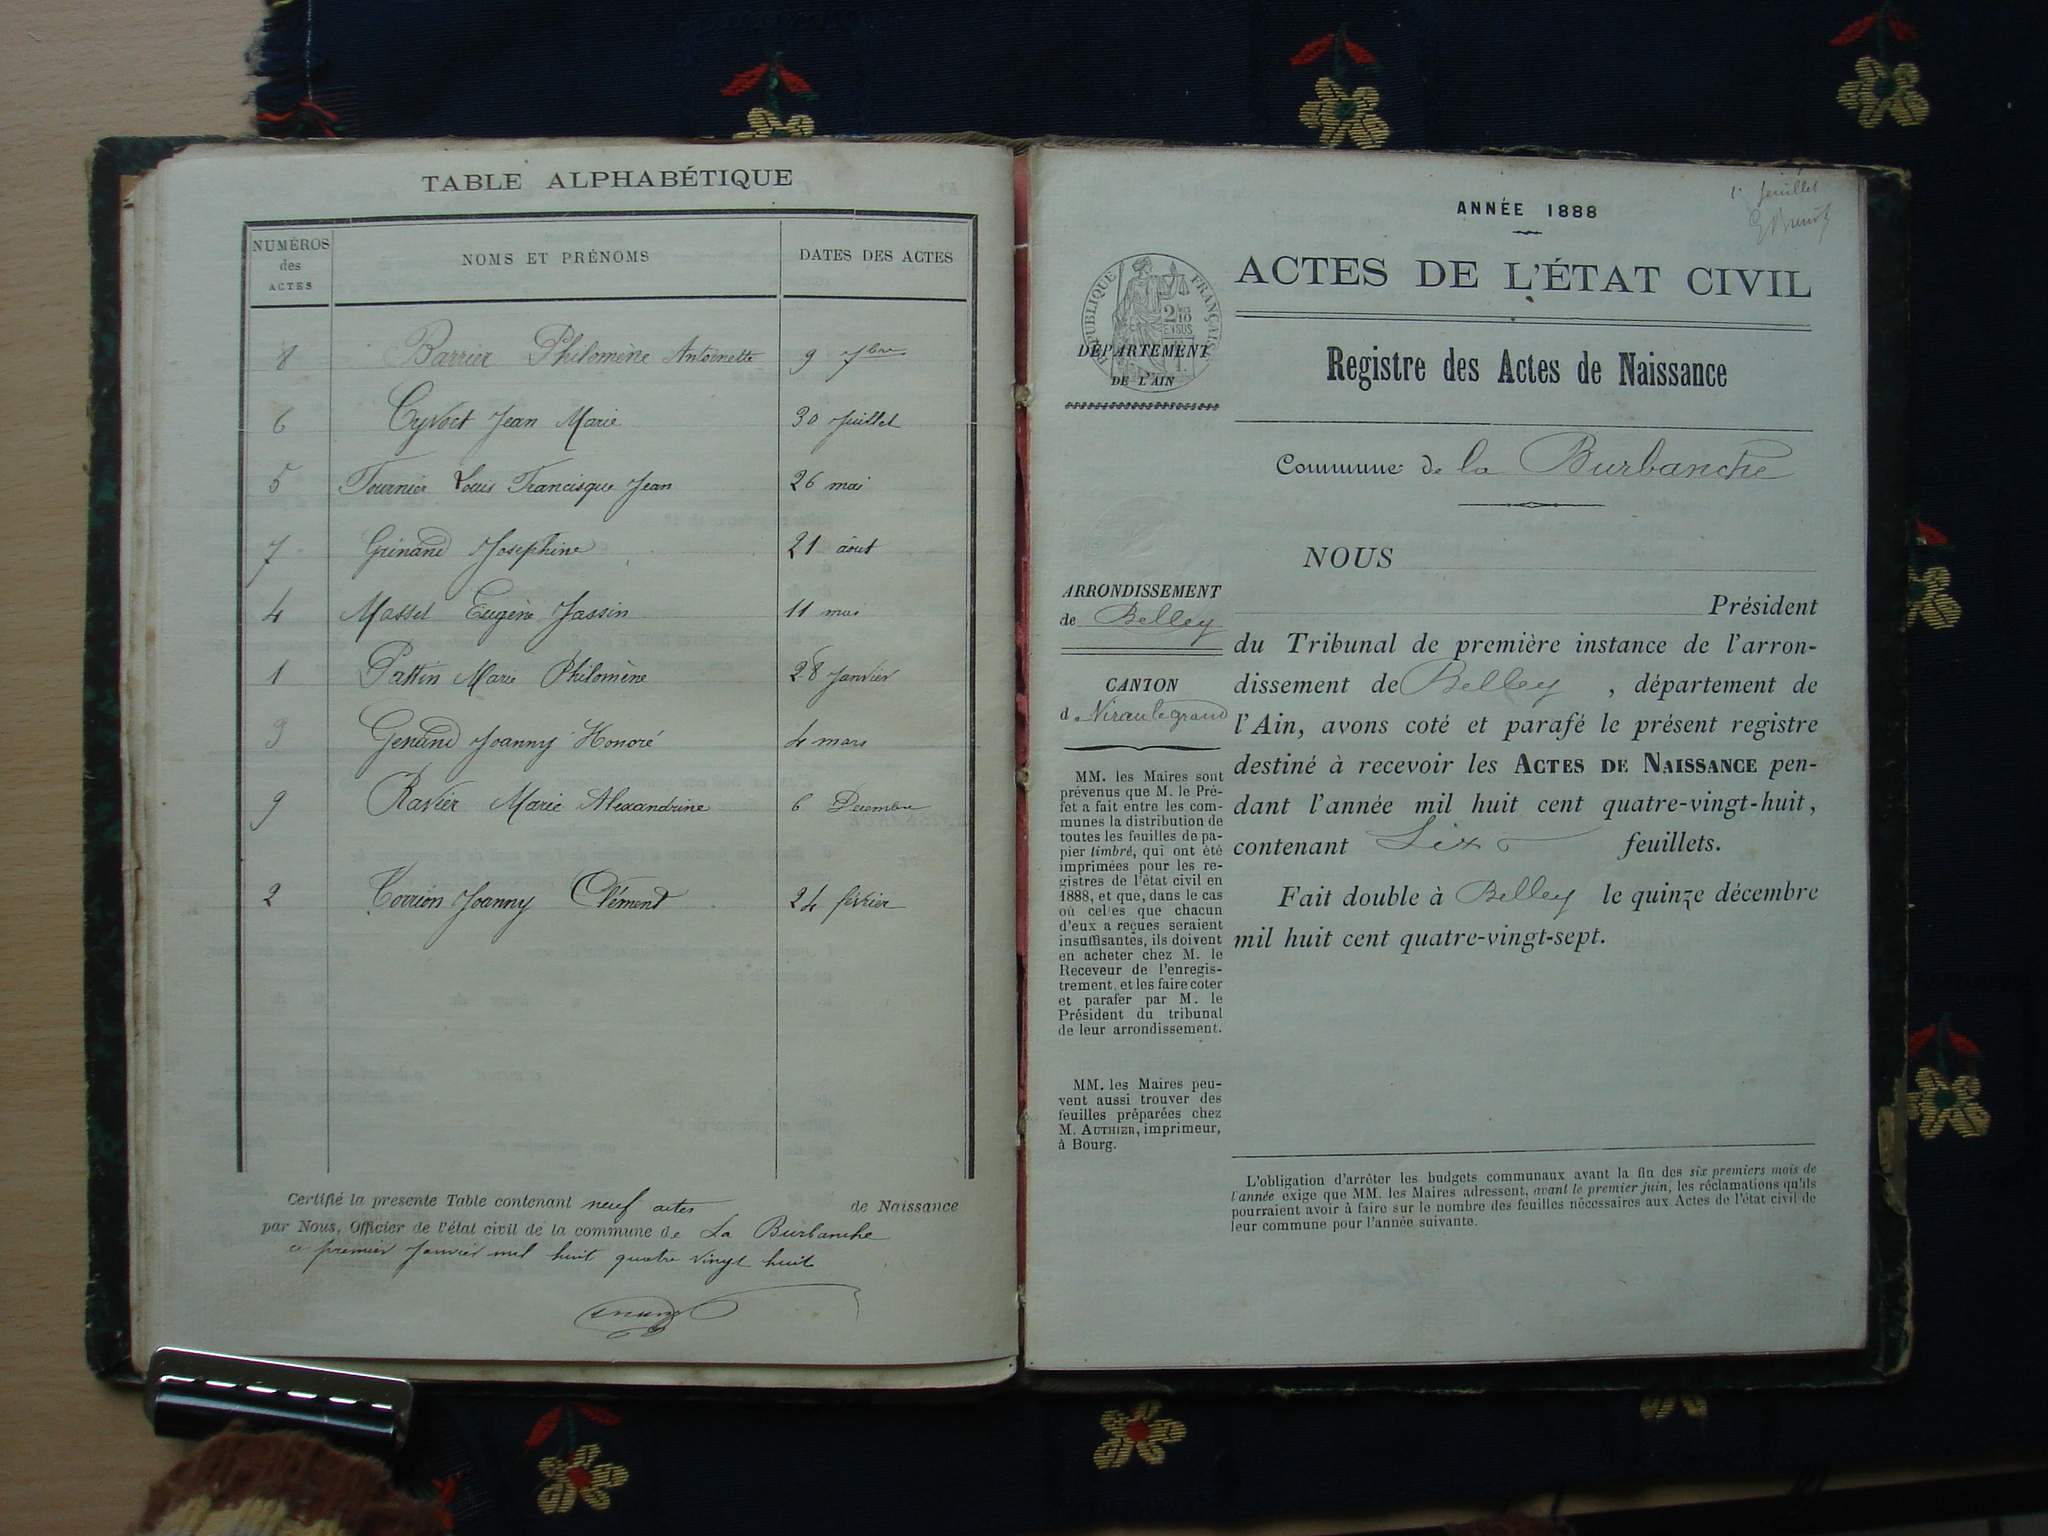 TABLE ALPHABÉTIQUE
NUMÉROS des ACTES NOMS ET PRÉNOMS DATES DES ACTES
8 Barrier Philomène Antoinette 9 7bre
6 Cyvoct Jean Marie 30 Juillet
5 Tournier Louis Francisque Jean 26 mai
7 Grinand Josephine 21 août
4 Massel Eugène 11 mai
1 Pattin Marie Philomène 28 Janvier
3 Joanny Honoré 4 mars
9 Ravier Marie Alexandrine 6 Décembre
2 Torrion Joanny Clément 24 février
Certifié la presente Table contenant neuf actes de Naissance
par Nous, Officier de l'état civil de la commune de La Burbanche
ce premier Janvier mil huit quatre vingt huit
1r feuillet
ANNÉE 1888
ACTES DE L'ÉTAT CIVIL
RÉPUBLIQUE FRANÇAISE
DÉPARTEMENT
DE L'AIN
Registre des Actes de Naissance
Commune de la Burbanche
ARRONDISSEMENT
de Belley
CANTON
d Virieu le grand
MM. les Maires sont
prévenus que M. le Pré-
fet a fait entre les com-
munes la distribution de
toutes les feuilles de pa-
pier timbré, qui ont été
imprimées pour les re-
gistres de l'état civil en
1888, et que, dans le cas
où celles que chacun
d'eux a reçues seraient
insuffisantes, ils doivent
en acheter chez M. le
Receveur de l'enregis-
trement, et les faire coter
et parafer par M. le
Président du tribunal
de leur arrondissement.
MM. les Maires peu-
vent aussi trouver des
feuilles préparées chez
M. AUTHIER, imprimeur,
à Bourg.
NOUS
Président
du Tribunal de première instance de l'arron-
dissement de Belley , département de
l'Ain, avons coté et parafé le présent registre
destiné à recevoir les ACTES DE NAISSANCE pen-
dant l'année mil huit cent quatre-vingt-huit,
contenant Six feuillets.
Fait double à Belley le quinze décembre
mil huit cent quatre-vingt-sept.
L'obligation d'arrêter les budgets communaux avant la fin des six premiers mois de
l'année exige que MM. les Maires adressent, avant le premier juin, les réclamations qu'ils
pourraient avoir à faire sur le nombre des feuilles nécessaires aux Actes de l'état civil de
leur commune pour l'année suivante.